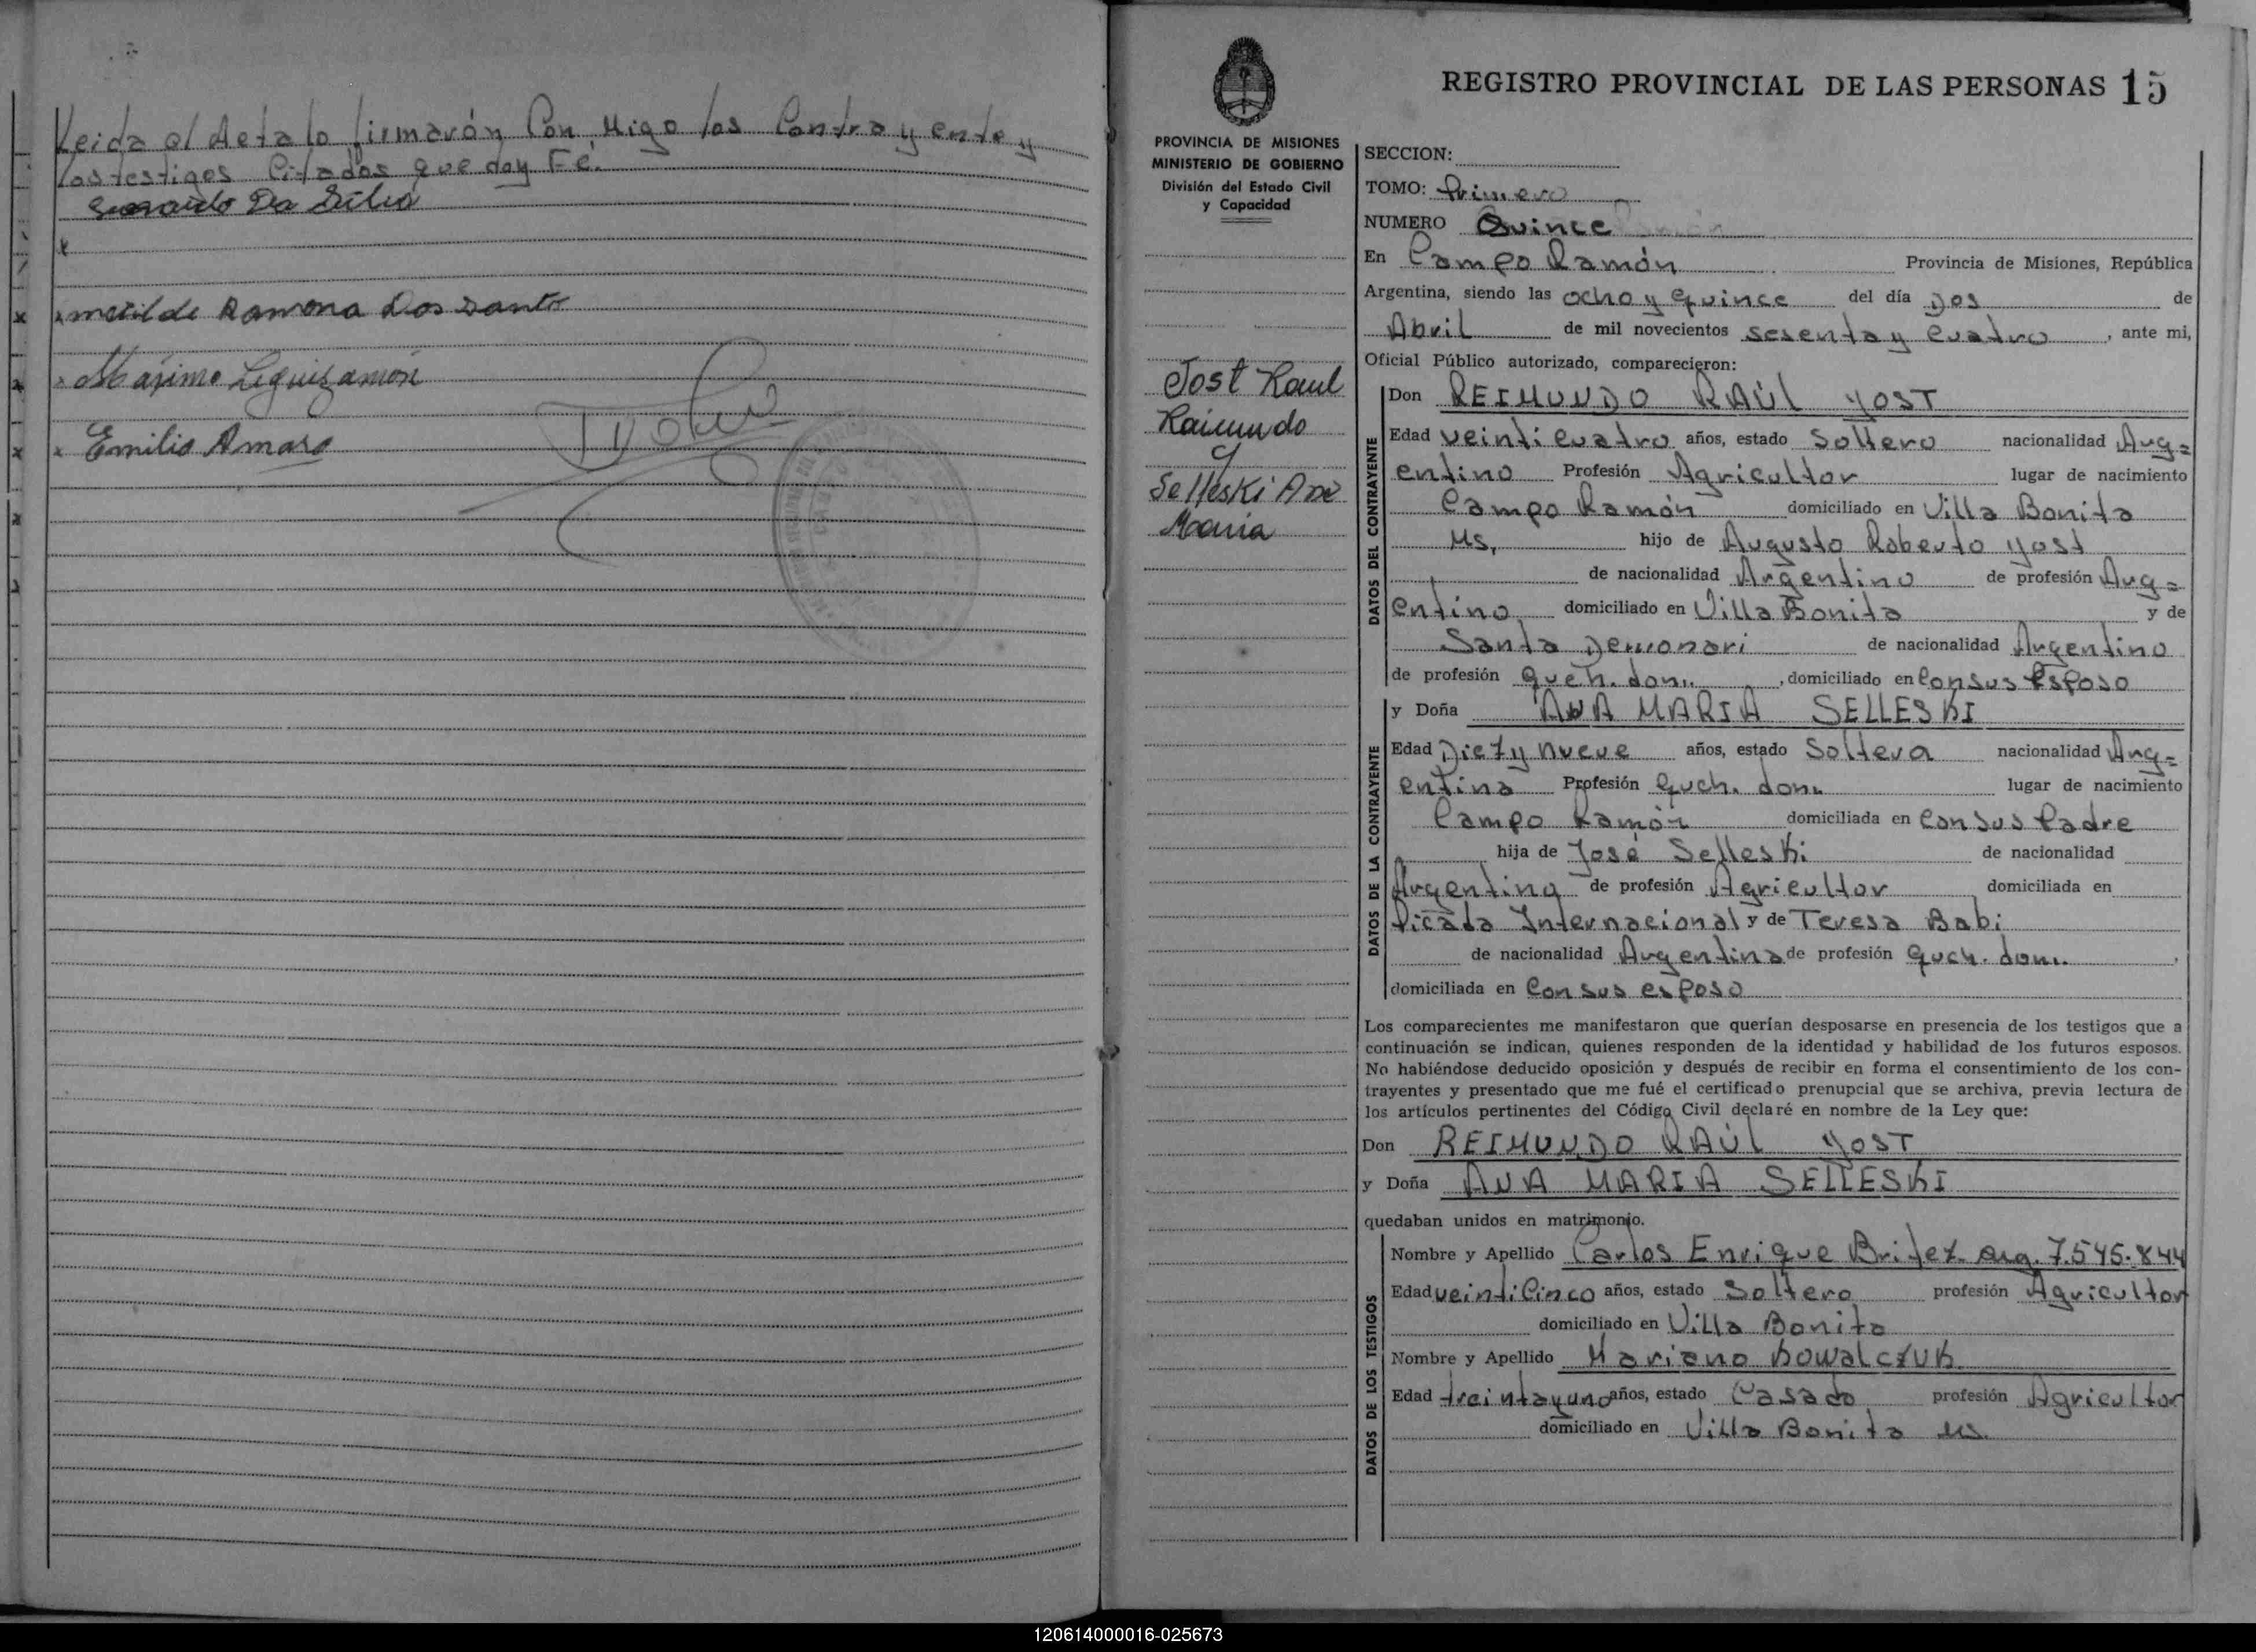 Leida el Acta lo firmarón Con Migo los Contrayente y
los testigos Citados que doy Fé.
Da Silva
x
x matilde Ramona Dos Santo
x Máximo Leguizamón
x Emilio Amaro
PROVINCIA DE MISIONES
MINISTERIO DE GOBIERNO
División del Estado Civil
y Capacidad
Jost Raul
Raimundo
y
Selleski Ana
Maria
REGISTRO PROVINCIAL DE LAS PERSONAS 15
SECCION:
TOMO: Primero
NUMERO Quince
En Campo Ramón Provincia de Misiones, República
Argentina, siendo las ocho y quince del día Dos de
Abril de mil novecientos sesenta y cuatro, ante mi,
Oficial Público autorizado, comparecieron:
DATOS DEL CONTRAYENTE
Don REIMUNDO RAÚL YOST
Edad veinticuatro años, estado Soltero nacionalidad Arg=
entino Profesión Agricultor lugar de nacimiento
Campo Ramón domiciliado en Villa Bonita
Ms, hijo de Augusto Roberto Yost
de nacionalidad Argentino de profesión Arg=
entino domiciliado en Villa Bonita y de
Santa Demonari de nacionalidad Argentino
de profesión queh. dom. , domiciliado en Consus Esposo
DATOS DE LA CONTRAYENTE
y Doña ANA MARIA SELLESKI
Edad Diezynueve años, estado Soltera nacionalidad Arg=
entina Profesión Quch. dom. lugar de nacimiento
Campo Ramón domiciliada en Consus Padre
hija de José Selleski de nacionalidad
Argentino de profesión Agricultor domiciliada en
Picada Internacional y de Teresa Babi
de nacionalidad Argentina de profesión Quch. dom.
domiciliada en Consus esposo
Los comparecientes me manifestaron que querían desposarse en presencia de los testigos que a
continuación se indican, quienes responden de la identidad y habilidad de los futuros esposos.
No habiéndose deducido oposición y después de recibir en forma el consentimiento de los con-
trayentes y presentado que me fué el certificado prenupcial que se archiva, previa lectura de
los artículos pertinentes del Código Civil declaré en nombre de la Ley que:
Don REIMUNDO RAÚL YOST
y Doña ANA MARIA SELLESKI
quedaban unidos en matrimonio.
DATOS DE LOS TESTIGOS
Nombre y Apellido Carlos Enrique Britez arg. 7.545.844
Edad veinticinco años, estado Soltero profesión Agricultor
domiciliado en Villa Bonita
Nombre y Apellido Mariano Kowalczuk
Edad treintayuno años, estado Casado profesión Agricultor
domiciliado en Villa Bonita Ms.
120614000016-025673